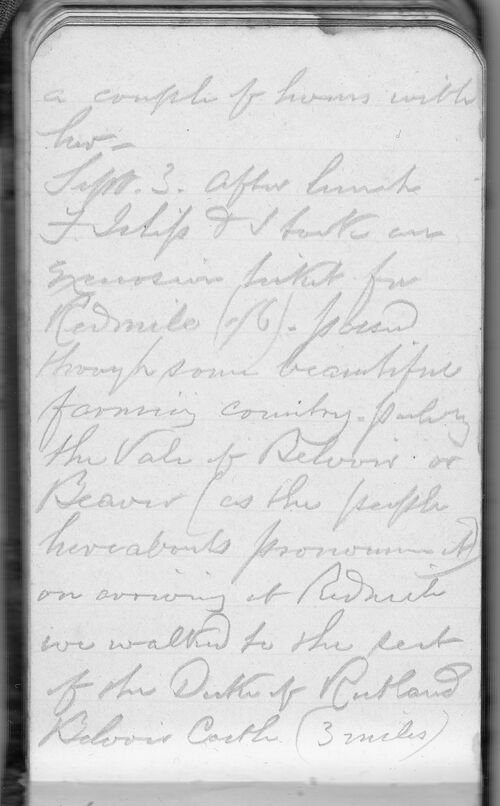 a couple of hours with
her -
Sept. 3. After lunch
F. Islip & I took an
excursion ticket for
Redmile (1/6) - passed
through some beautiful
farming country -
the Vale of Belvoir or
Beaver (as the people
hereabouts pronounce it)
on arriving at Redmile
we walked to the seat
of the Duke of Rutland
Belvoir Castle (3 miles)